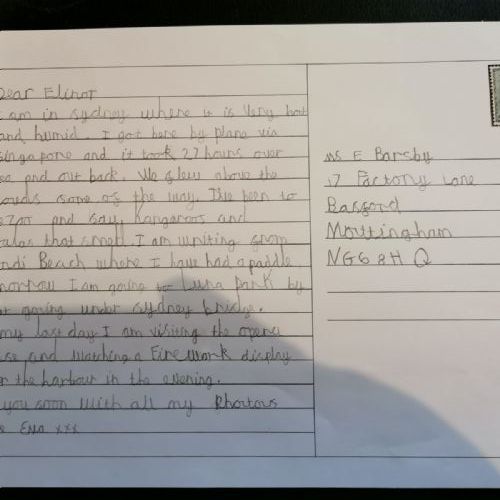 Dear Elinor
I am in sydney where it is very hot
and humid. I got here by plane via
singapore and it took 27 hours over
sea and out back. We flew above the
clouds some of the way. I've been to
zoo and saw kangaroos and
that smell. I am writing from
ndi Beach where I have had a paddle.
morrow I am going to Luna park by
at going under sydney bridge.
my last day I am visiting the opera
use and watching a Firework display
r the harbour in the evening.
you soon with all my Photous
Ena xxx
Ms E Barsby
17 Factory Lane
Basford
Nouttingham
NG6 8H Q